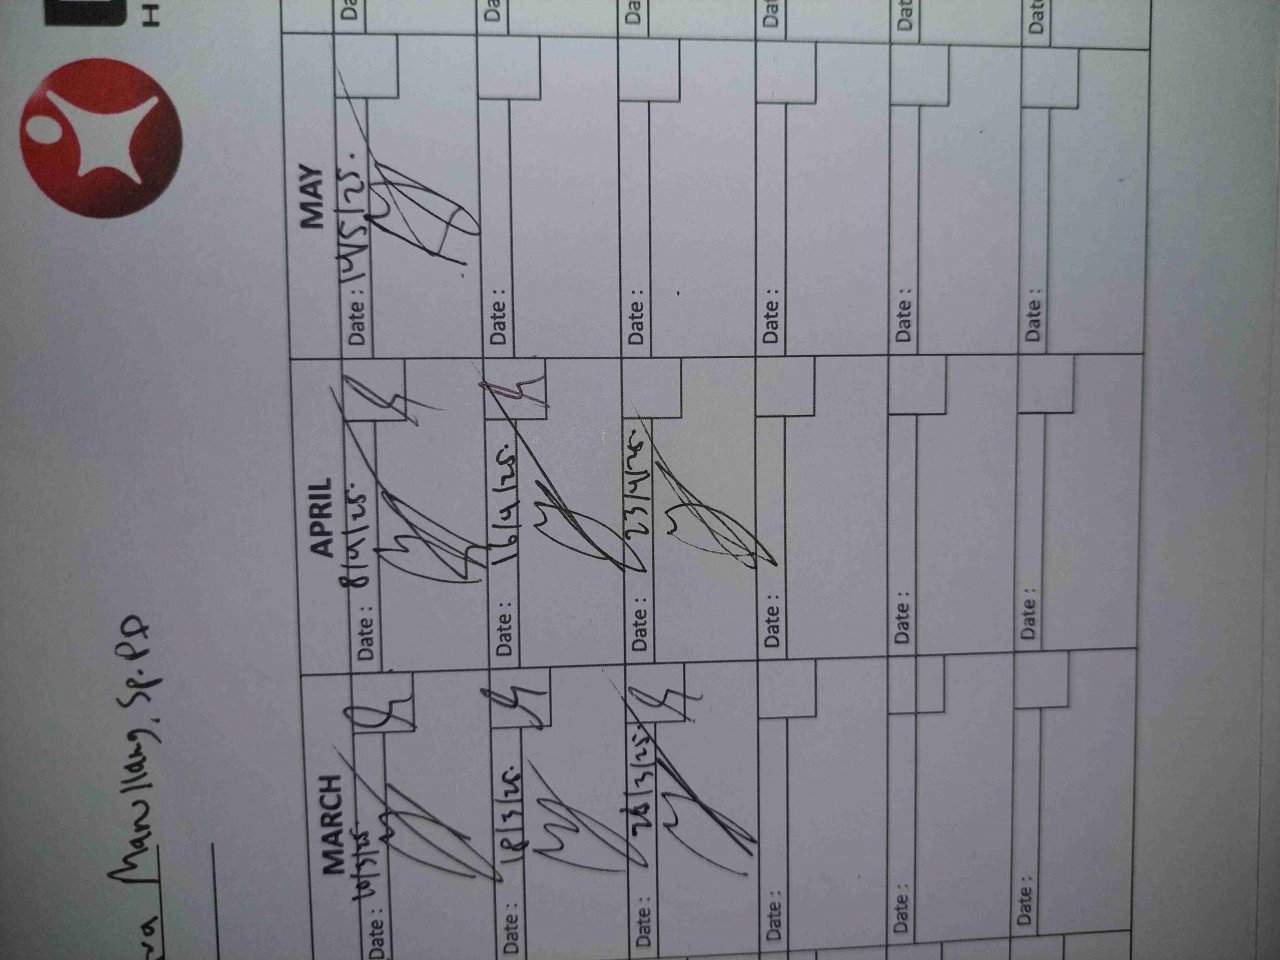 Manullang, Sp.PD
MARCH APRIL MAY
Date : 10/3/25. Date : 8/4/25. Date : 14/5/25.
Date : 18/3/25. Date : 16/4/25. Date :
Date : 26/3/25. Date : 23/4/25. Date :
Date : Date : Date :
Date : Date : Date :
Date : Date : Date :